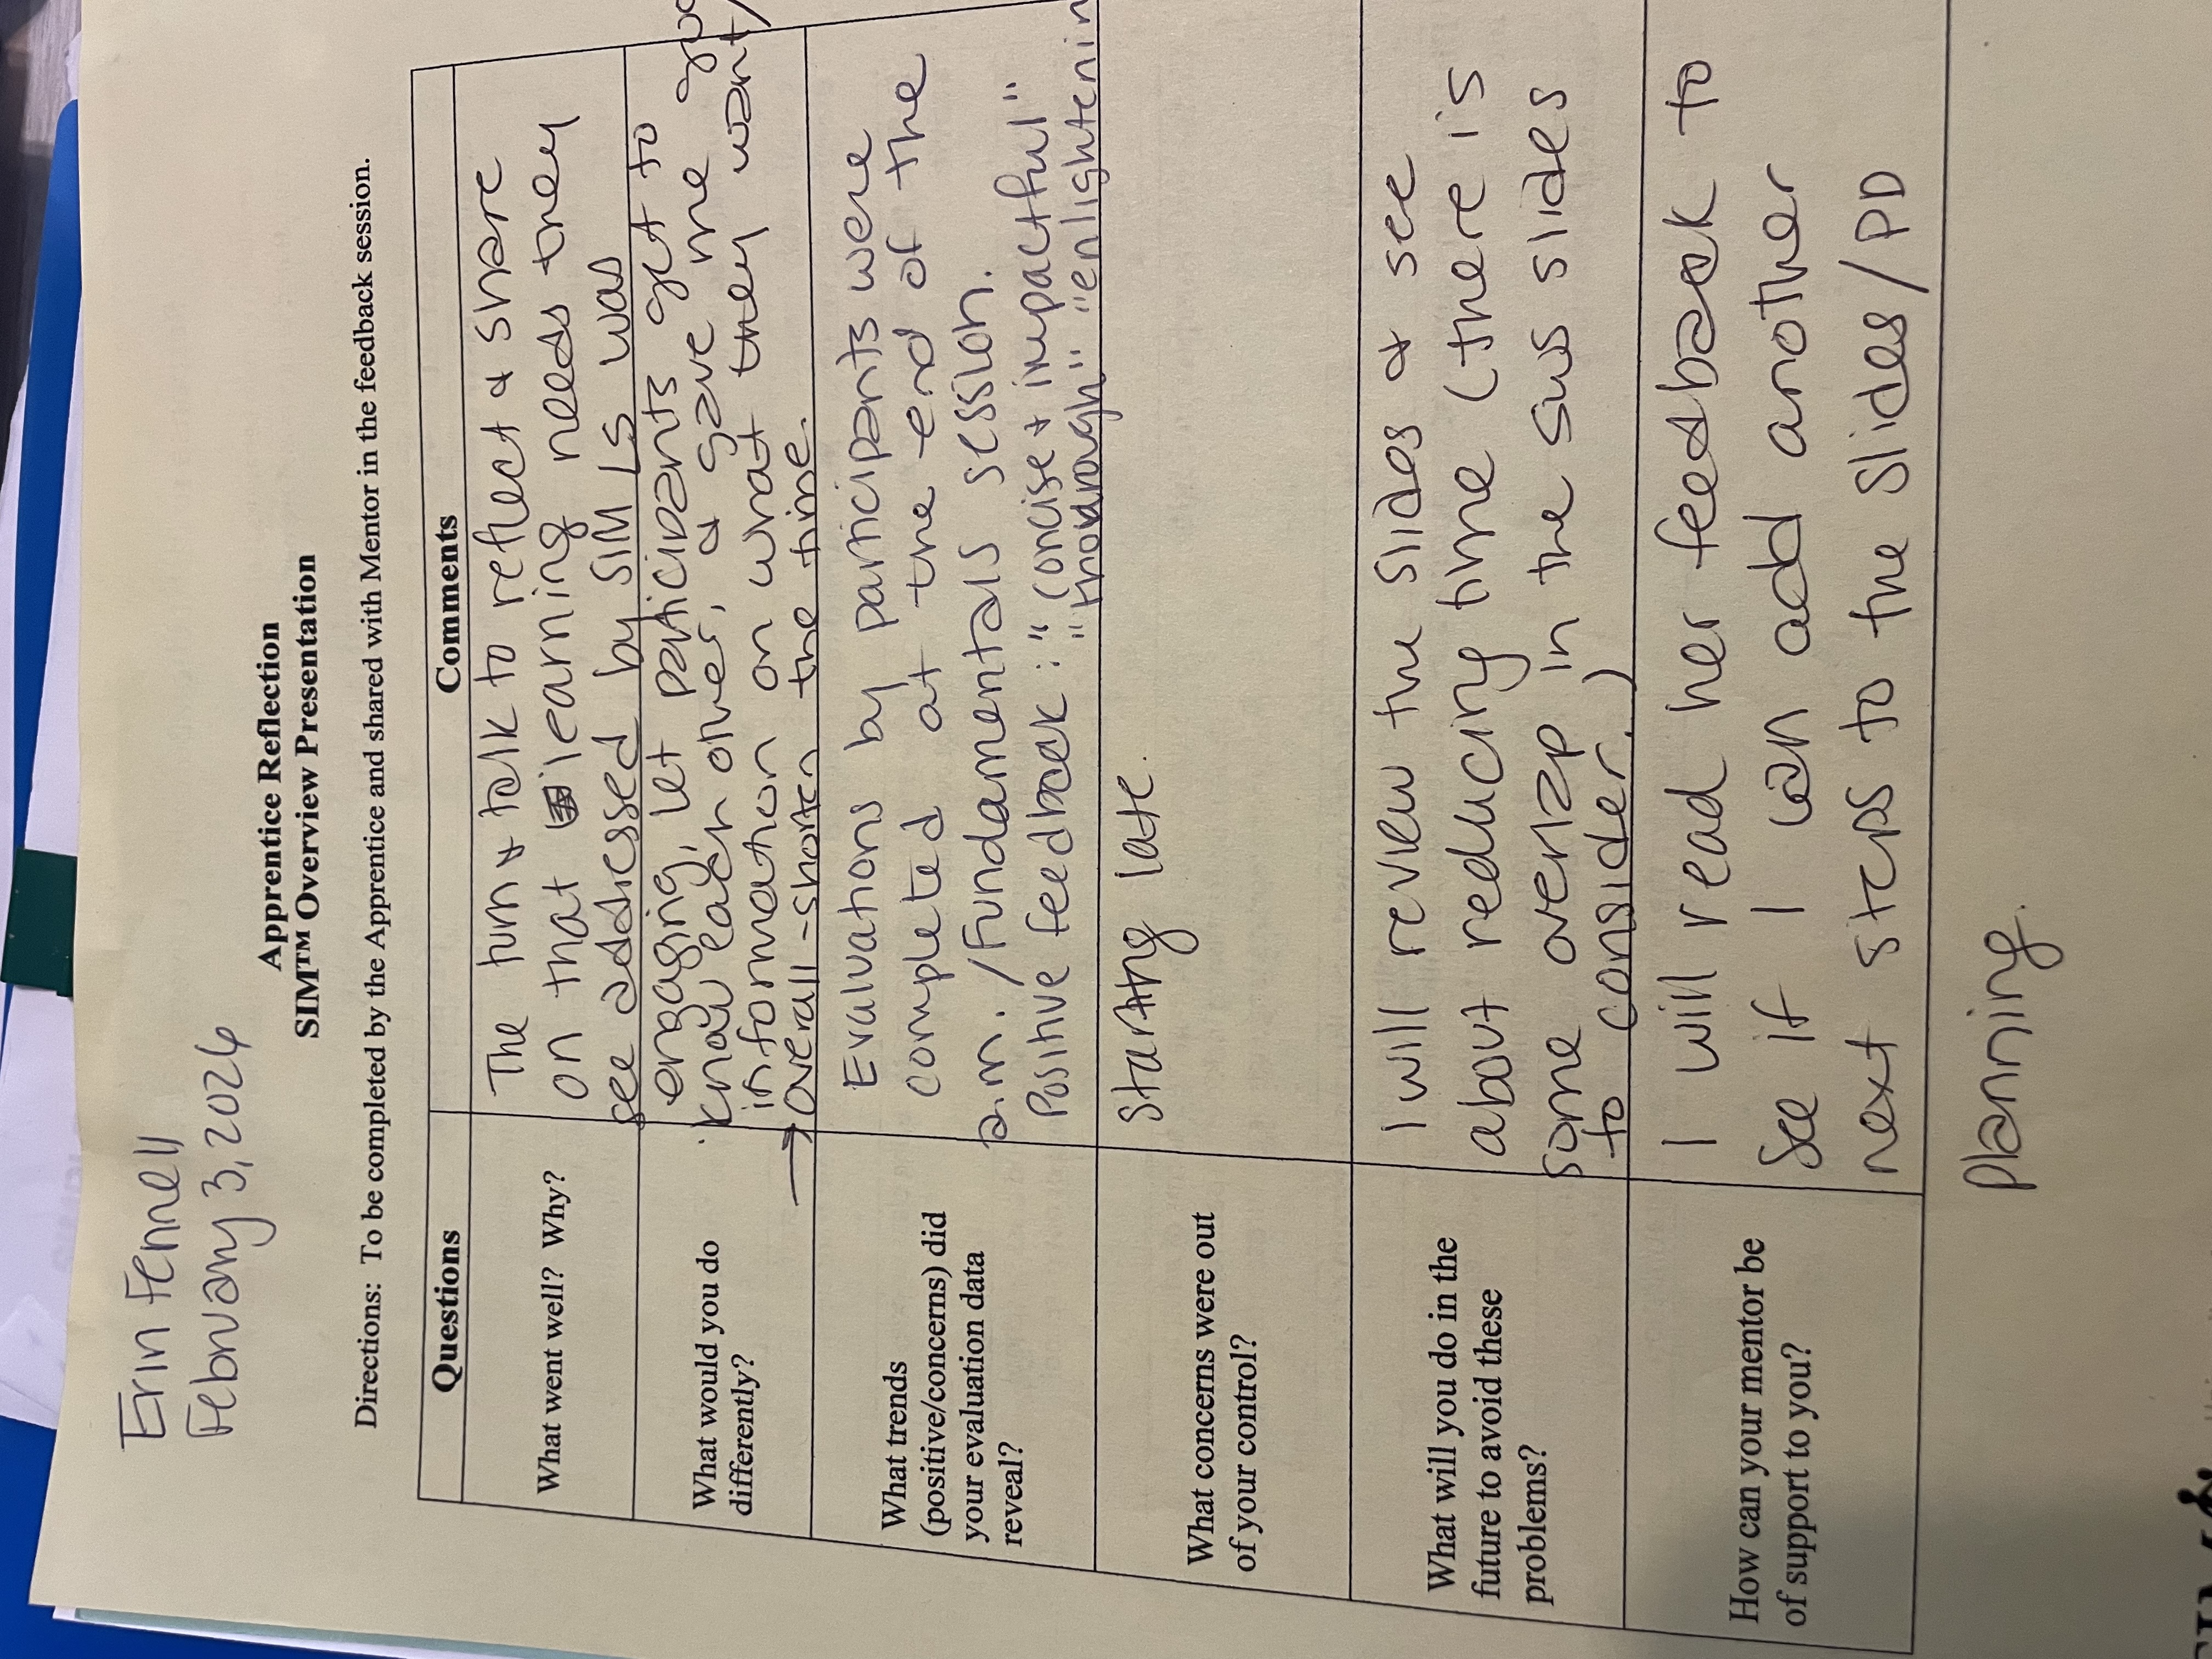 Erin Fennell
February 3, 2026
Apprentice Reflection
SIM™ Overview Presentation
Directions: To be completed by the Apprentice and shared with Mentor in the feedback session.
Questions
Comments
What went well? Why?
The turn & talk to reflect & share
on that learning needs they
see addressed by SIM LS was
What would you do
differently?
engaging, let participants get to
know each other, & gave me
information on what they want
→ overall - shorten the time.
What trends
(positive/concerns) did
your evaluation data
reveal?
Evaluations by participants were
completed at the end of the
a.m./Fundamentals session.
Positive feedback: "concise & impactful"
"thorough" "enlightenin
What concerns were out
of your control?
starting late.
What will you do in the
future to avoid these
problems?
I will review the slides & see
about reducing time (there is
some overlap in the slides
to consider.)
How can your mentor be
of support to you?
I will read her feedback to
see if I can add another
next steps to the slides/PD
planning.